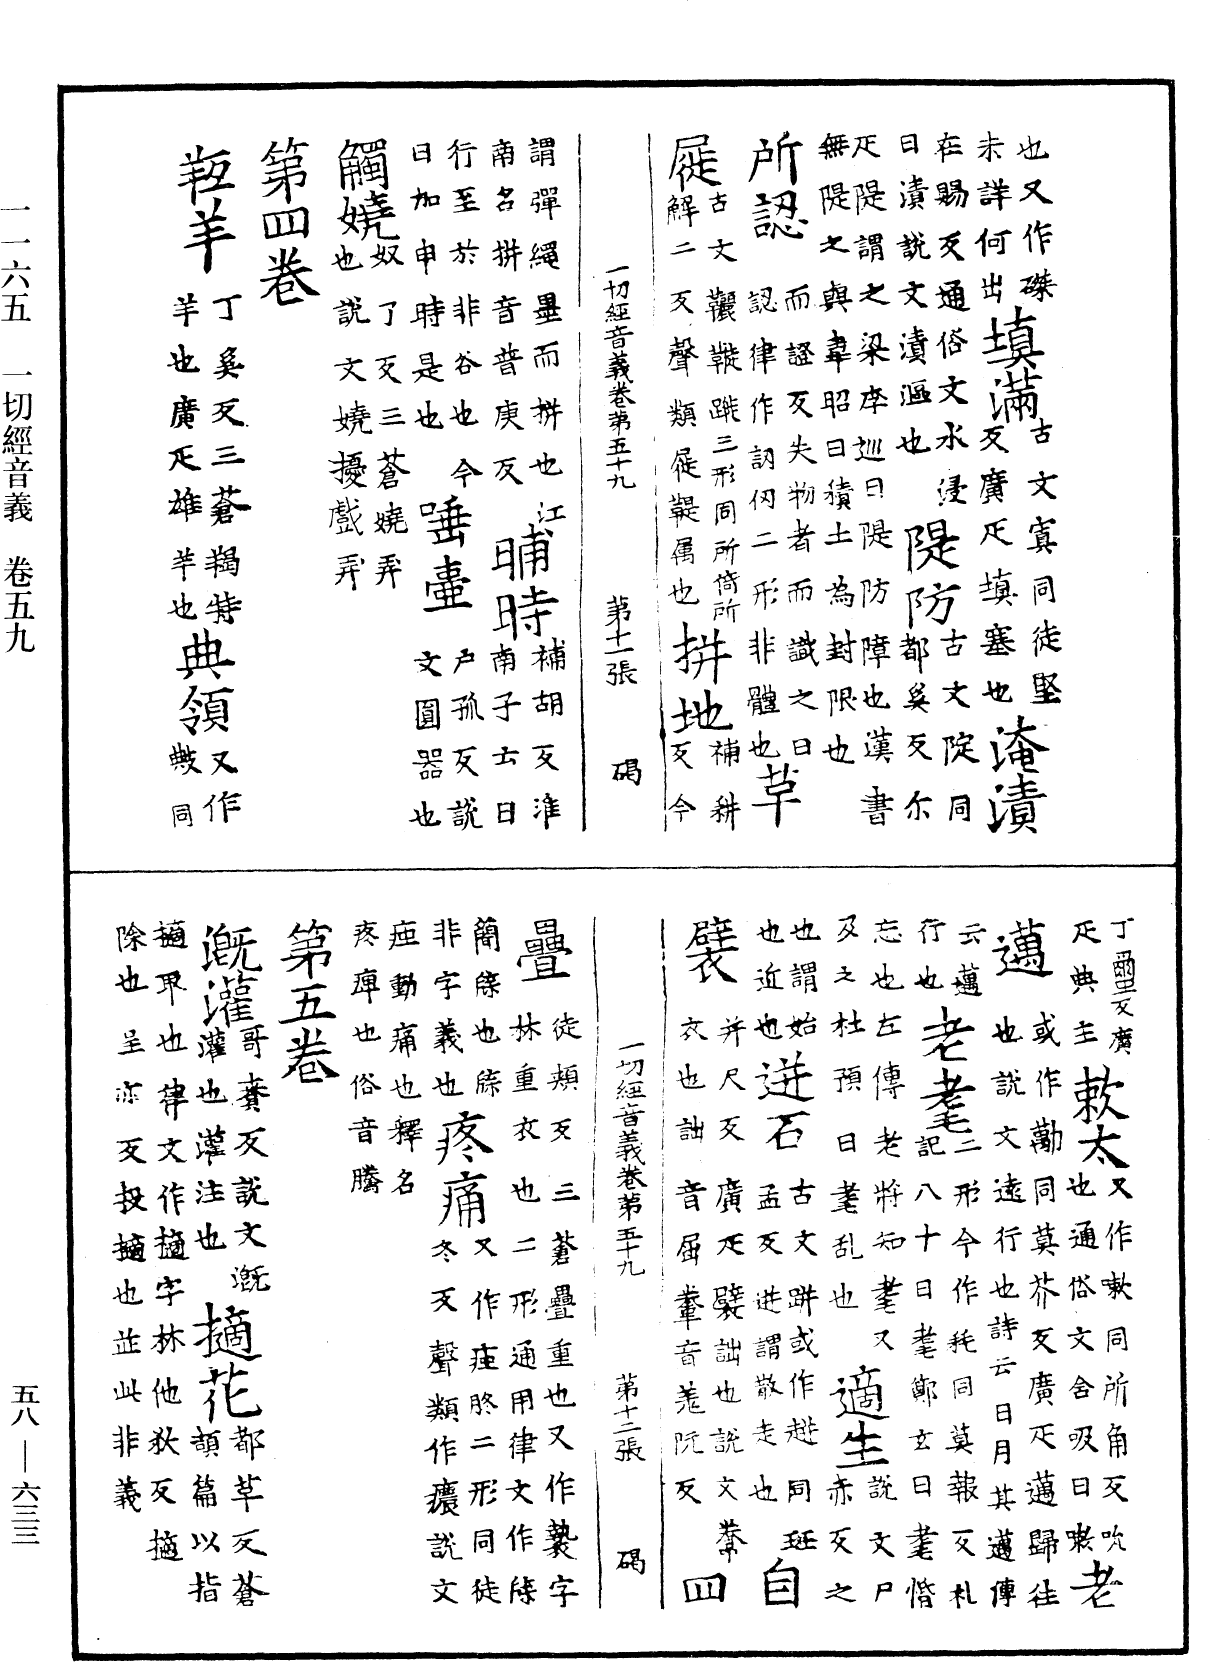 也又作磔 填滿 古文寘同徒堅
未詳何出 反廣疋填塞也 淹漬
在賜反通俗文水浸 隄防 古文院同
曰漬說文漬漚也 都奚反尒
疋隄謂之梁李巡曰隄防障也漢書
無隄之輿韋昭曰積土為封限也
所認 而證反失物者而識之曰
認律作訒仞二形非體也 草
屣 古文鞿鞭蹝三形同所倚所
解二反聲類屣鞮屬也 拼地 補耕
反今
一切經音義卷第五十九 第十一張 碣
謂彈繩墨而拼也江
南名拼音普庚反 晡時 補胡反淮
南子云日
行至於非谷也今
日加申時是也 唾壷 戶孤反說
文圓器也
觸嬈 奴了反三蒼嬈弄
也說文嬈擾戲弄
第四卷
羝羊 丁奚反三蒼羯特
羊也廣疋雄羊也 典領 又作
敟同
丁壐反廣
疋典主 欶太 又作嗽同所角反吮
也通俗文含吸曰嗽 老
邁 或作勱同莫芥反廣疋邁歸往
也說文遠行也詩云日月其邁傳
云邁
行也 老耄 二形今作耗同莫報反札
記八十曰耄鄭玄曰耄惛
忘也左傳老將知耄又
及之杜預曰耄乱也 適生 說文尸
赤反之
也謂始
也近也 迸石 古文跰或作趀同班
孟反迸謂散走也 自
襞 并尺反廣疋襞詘也說文韏
衣也詘音屈韏音羗阮反 四
一切經音義卷第五十九 第十二張 碣
疊 徒頰反三蒼疊重也又作褺字
林重衣也二形通用律文作牒
簡牒也牒
非字義也 疼痛 又作痋胮二形同徒
冬反聲類作癑說文
痋動痛也釋名
疼痺也俗音騰
第五卷
溉灌 哥賚反說文溉
灌也灌注也 擿花 都革反蒼
頡篇以指
擿取也律文作擿字林他狄反擿
除也呈亦反投擿也並此非義
一一六五 一切經音義 卷五九
五八——六三三